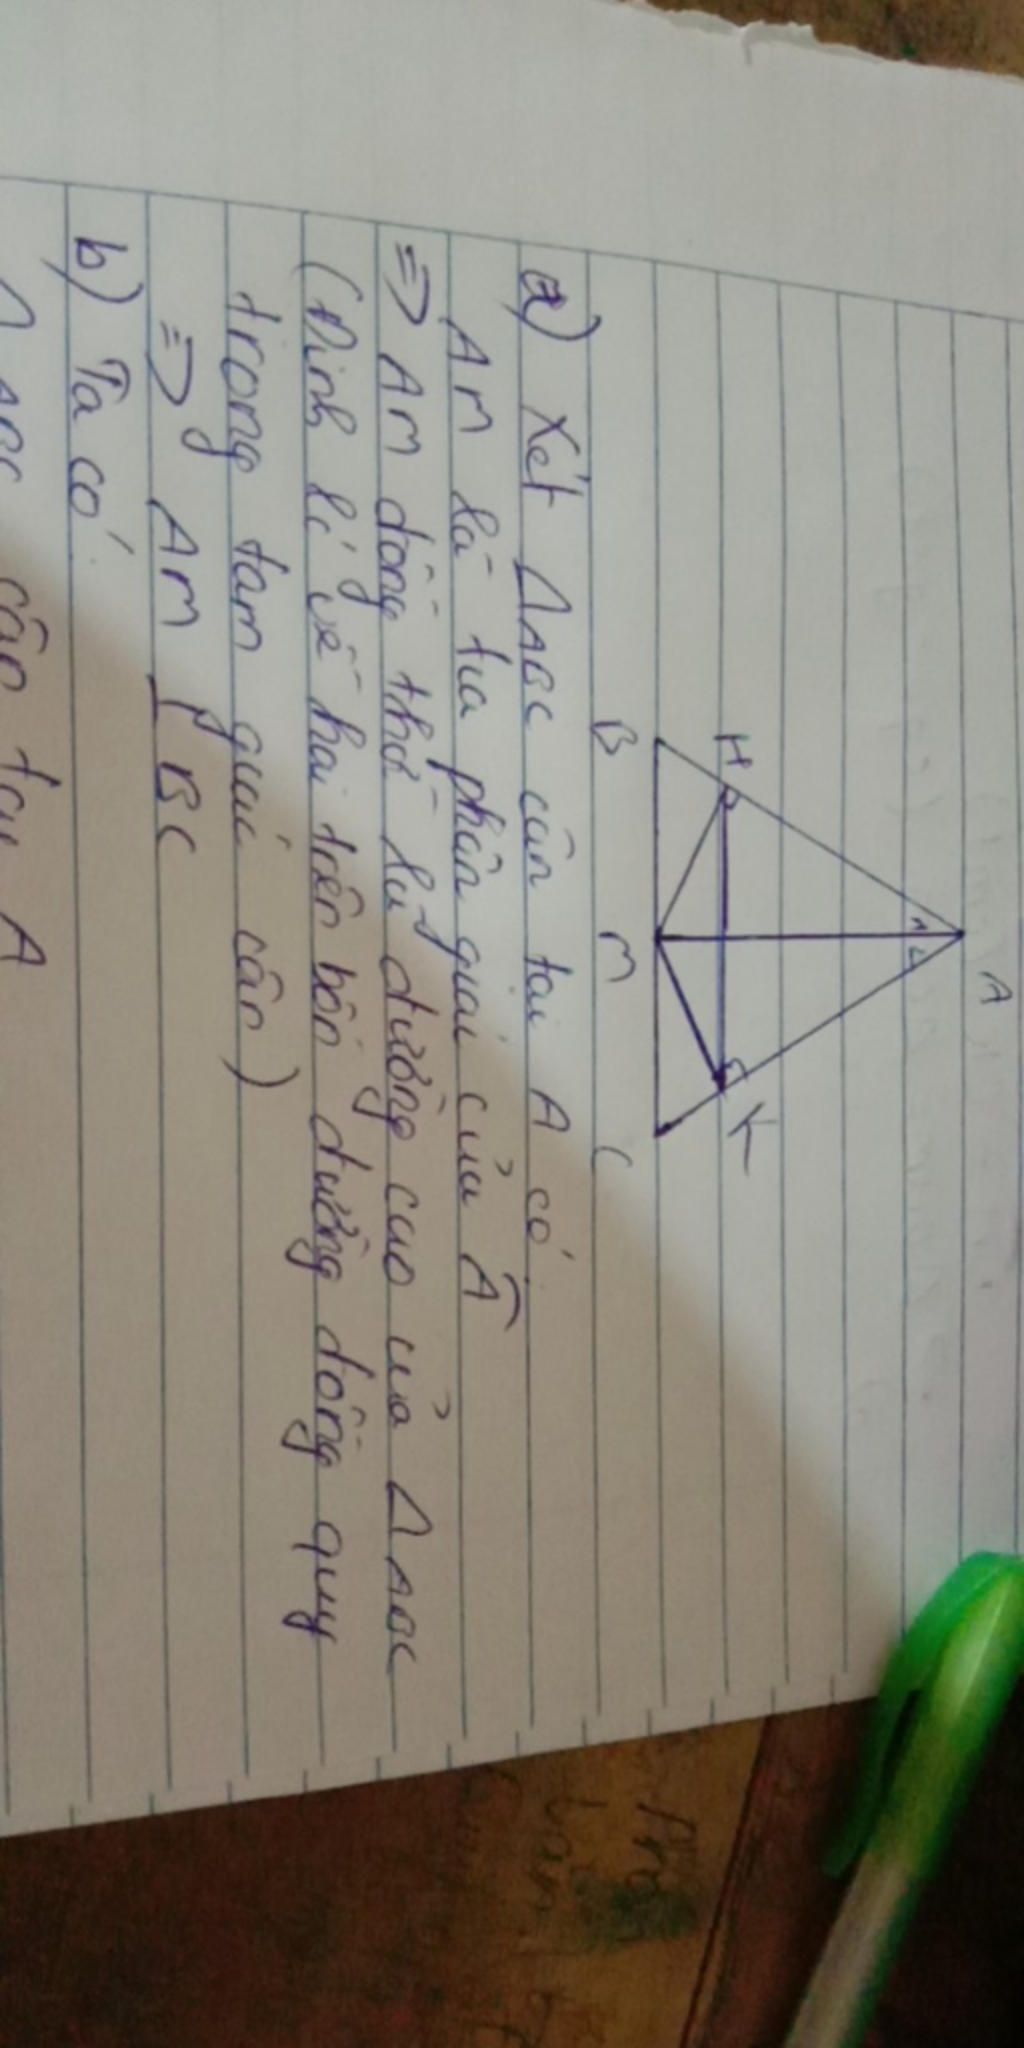 A
1 2
H K
B M C
a) Xét ΔABC cân tại A có:
AM là tia phân giác của Â
=> AM đồng thời là đường cao của ΔABC
(Định lí về hai trên bốn đường đồng quy
trong tam giác cân)
=> AM ⊥ BC
b) Ta có:
Δ ABC cân tại A